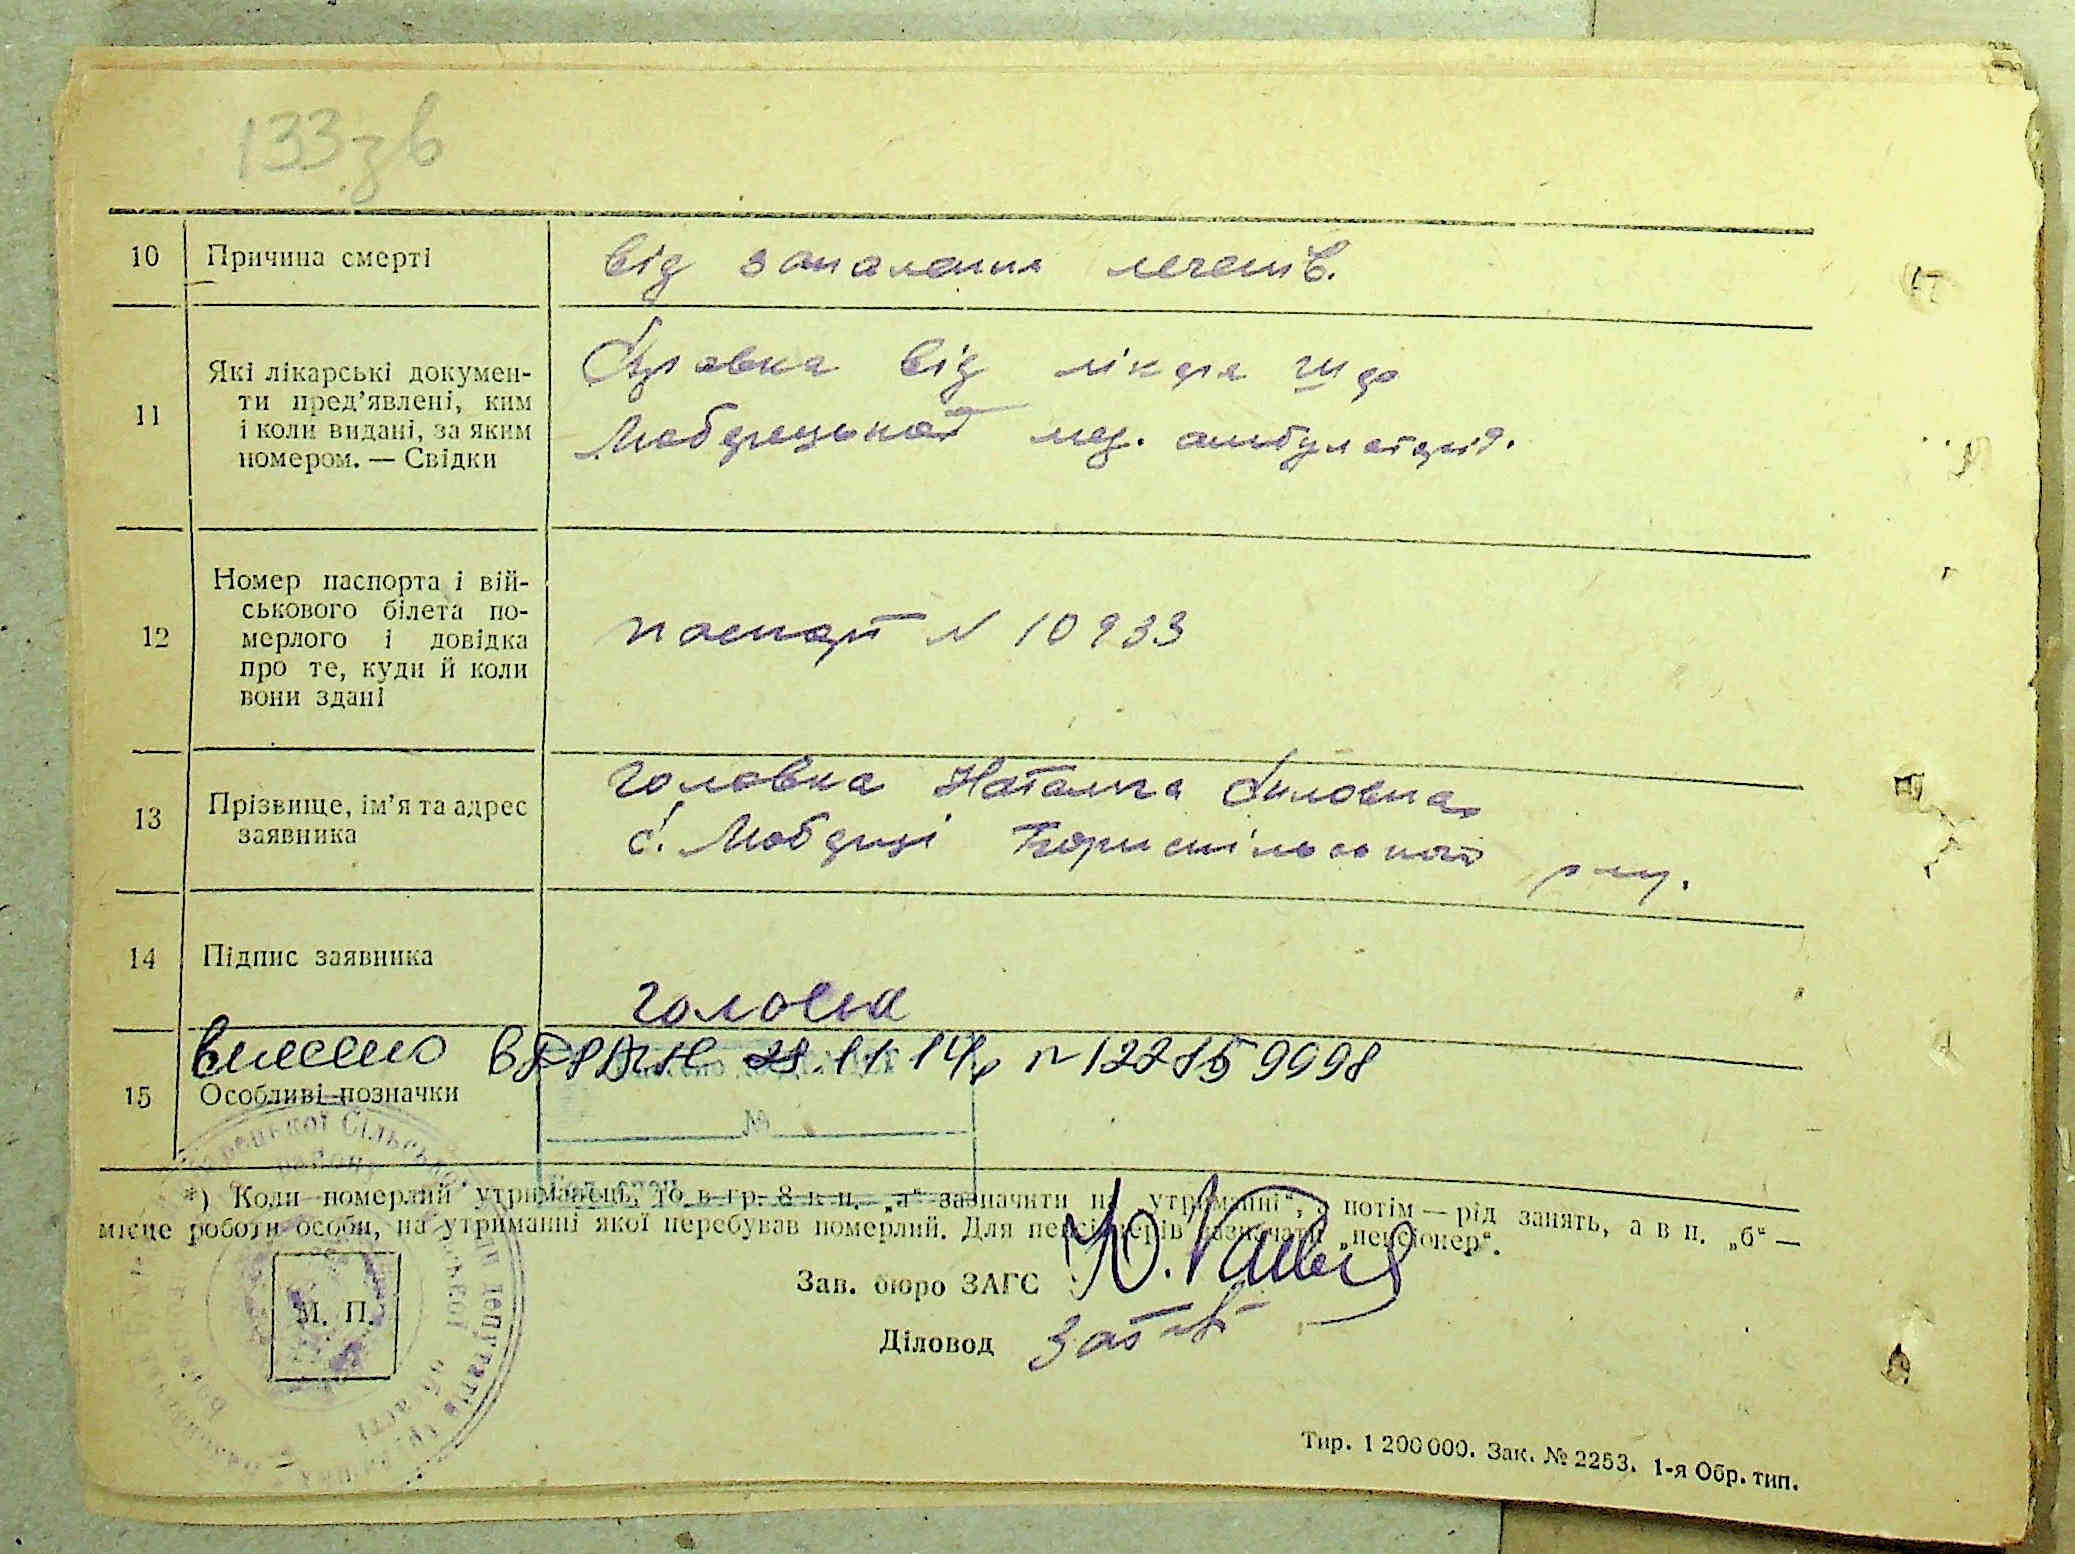 133 зв
10 Причина смерті від запалення легенів.
11 Які лікарські докумен-
ти пред’явлені, ким
і коли видані, за яким
номером. — Свідки
Справка від лікаря
Любарецької мед. амбулаторія.
12 Номер паспорта і вій-
ськового білета по-
мерлого і довідка
про те, куди й коли
вони здані
паспорт N 10933
13 Прізвище, ім’я та адрес
заявника
Головка Наталка
с. Любарці Бориспільського р-ну.
14 Підпис заявника
Головка
внесено в ДРАЦС 28.11.14р N 122159998
15 Особливі позначки
№
*) Коли померлий утриманець, то в гр. 8 в п. „а“ зазначити „на утриманні“, а потім — рід занять, а в п. „б“ —
місце роботи особи, на утриманні якої перебував померлий. Для пенсіонерів зазначати „пенсіонер“.
Зав. бюро ЗАГС
Діловод
М. П.
Тир. 1 200 000. Зак. № 2253. 1-я Обр. тип.